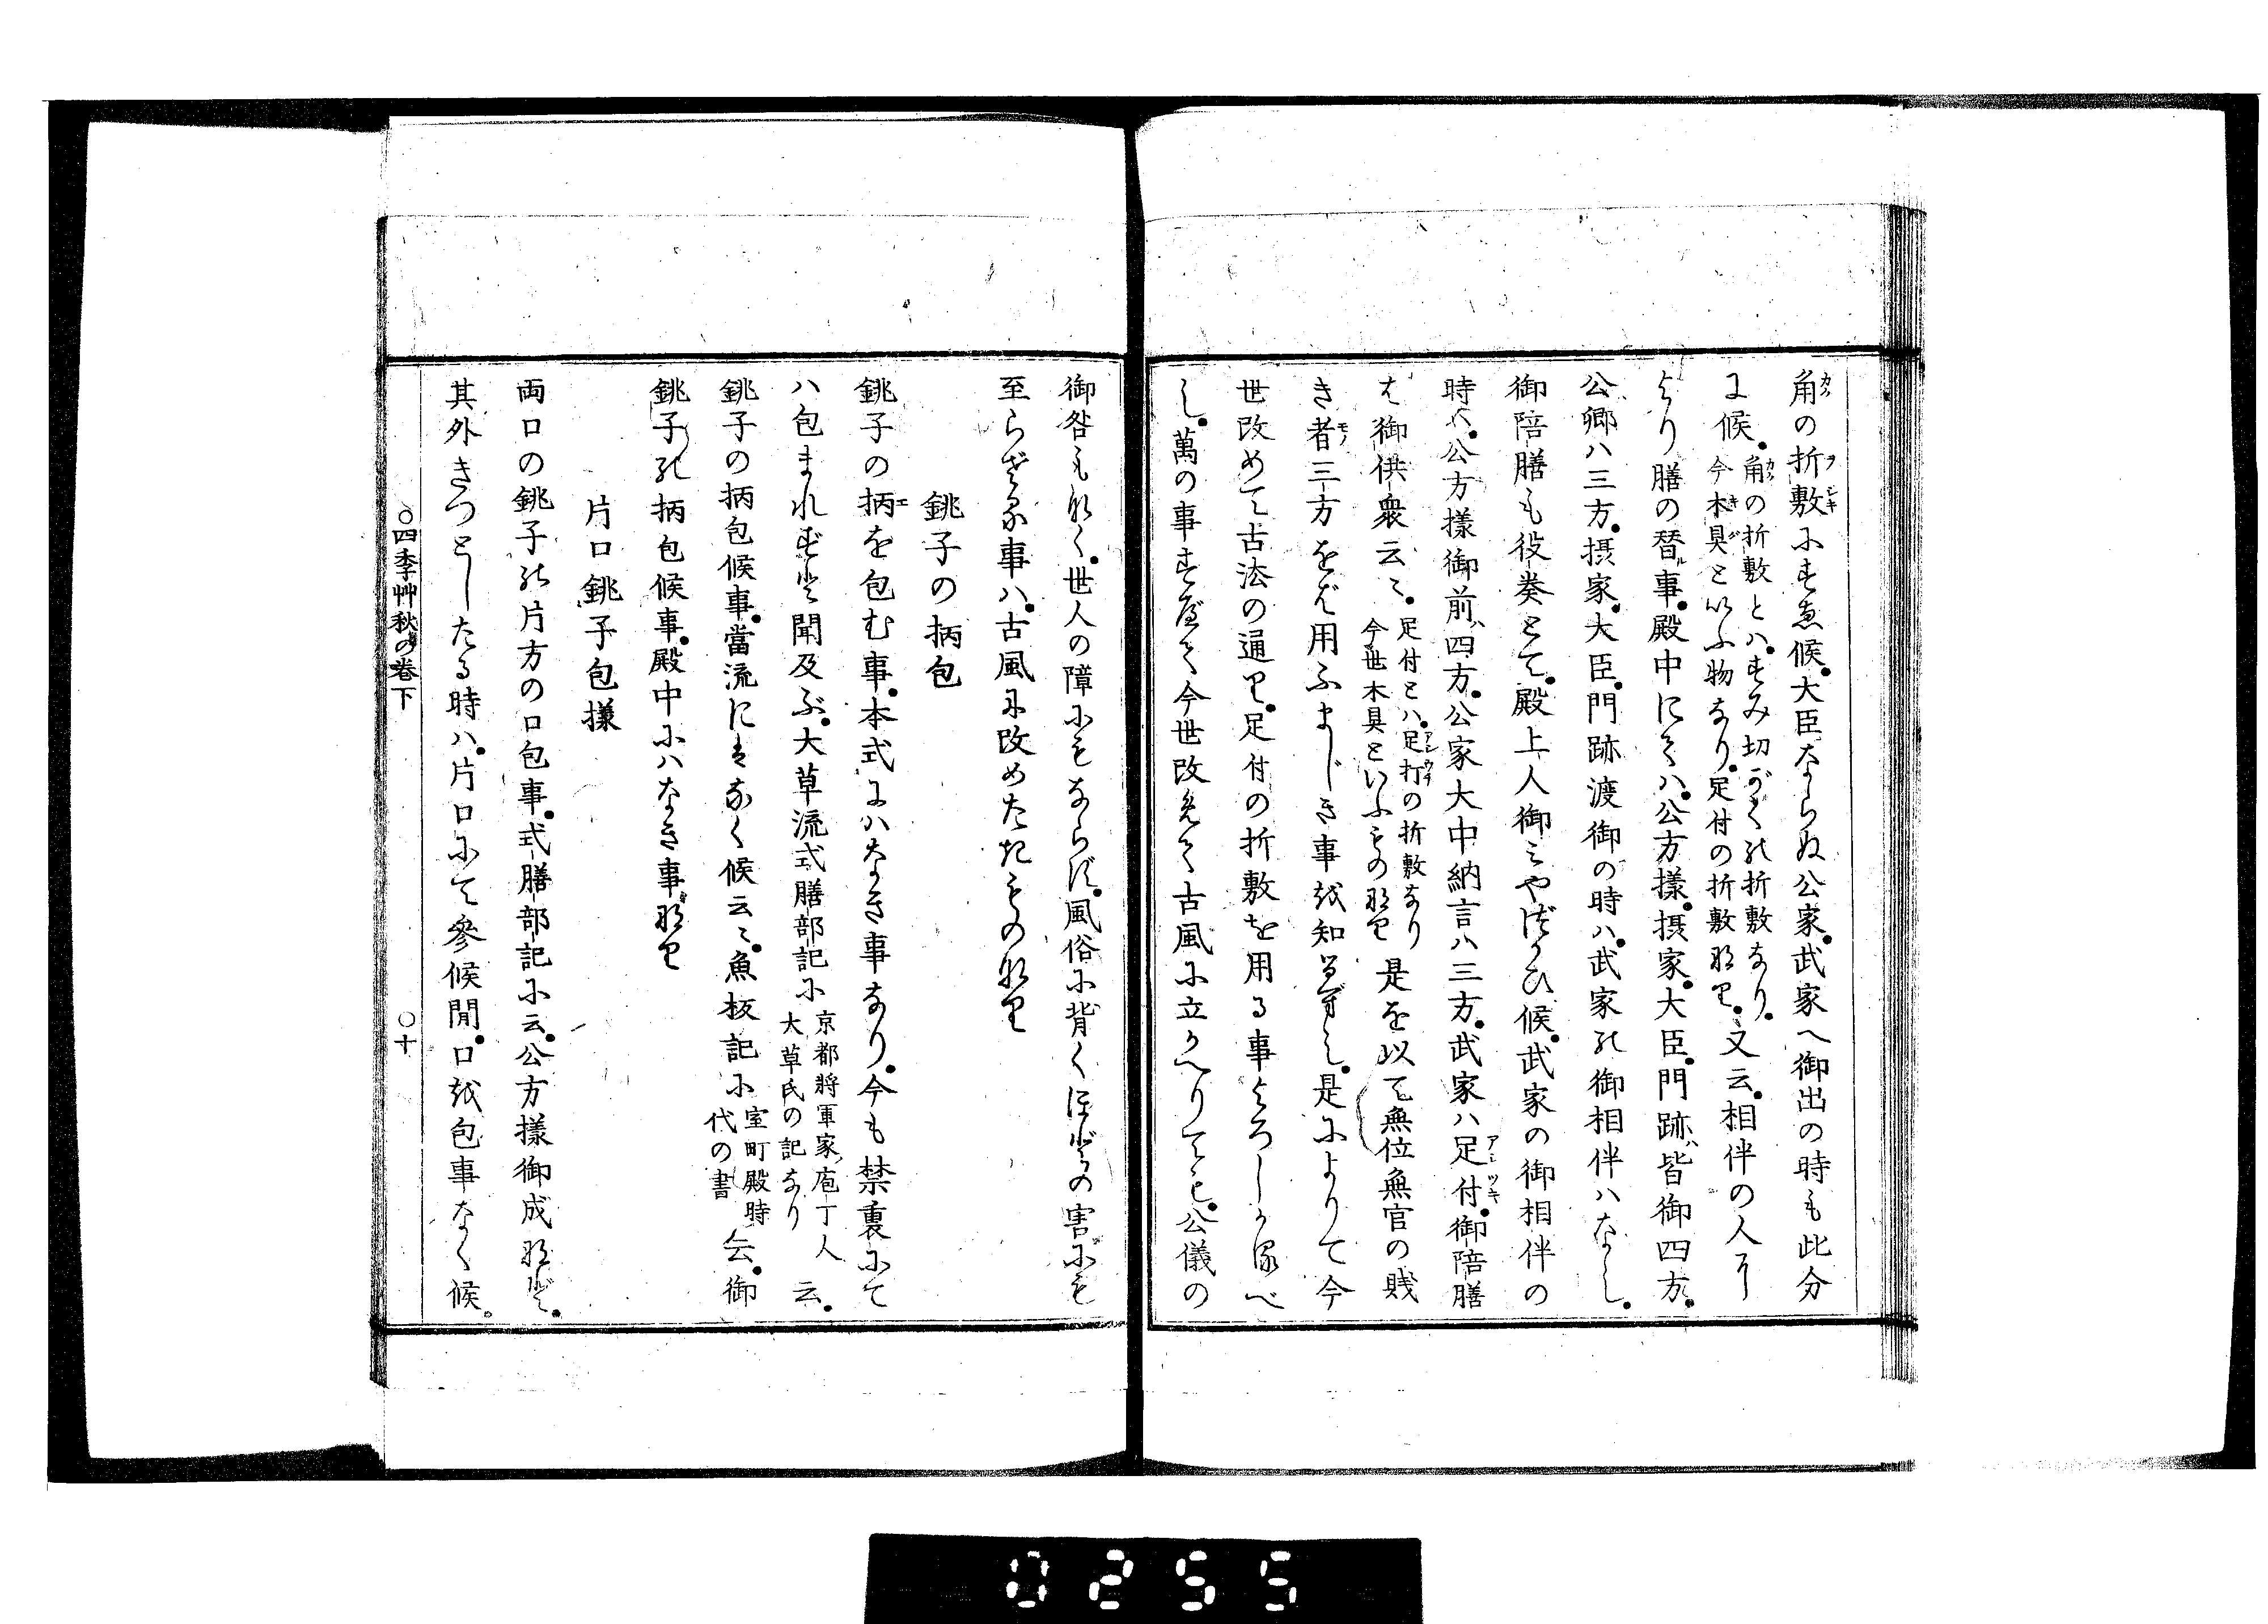 角の折敷にすゑ候。大臣ならぬ公家。武家へ御出の時も此分
に候。角の折敷とハ。すみ切かくの折敷なり。今木具といふ物なり。足付の折敷なり。又云。相伴の人に
より膳の替ル事。殿中にてハ。公方様。摂家。大臣。門跡ハ皆御四方。
公卿ハ三方。摂家。大臣。門跡渡御の時ハ。武家の御相伴ハなし。
御陪膳も役奏とて。殿上人御みやづかひ候。武家の御相伴の
時ハ。公方様御前ハ四方。公家大中納言ハ三方。武家ハ足付。御陪膳
は御供衆云々。足付とハ。足打の折敷なり今世木具といふもの也 是を以て無位無官の賎
き者三方をば用ふまじき事を知るべし。是によりて今
世改めて古法の通り。足付の折敷を用る事よろしかるべ
し。萬の事すべて今世改めて古風に立かへりても。公儀の
御咎もなく。世人の障にもならず。風俗に背くほどの害にも
至らざる事ハ。古風に改めたきものなり
銚子の柄包
銚子の柄を包む事。本式にハなき事なり。今も禁裏にて
ハ包まれずと聞及ぶ。大草流式膳部記に京都将軍家ノ庖丁人大草氏の記なり云。
銚子の柄包候事。當流にはなく候云々。魚板記に室町殿時代の書云。御
銚子の柄包候事。殿中にハなき事なり
片口銚子包様
両口の銚子の片方の口包事。式膳部記に云。公方様御成など。
其外きつとしたる時ハ。片口にて參候間。口を包事なく候。
○四季艸秋の巻下 ○十
0255